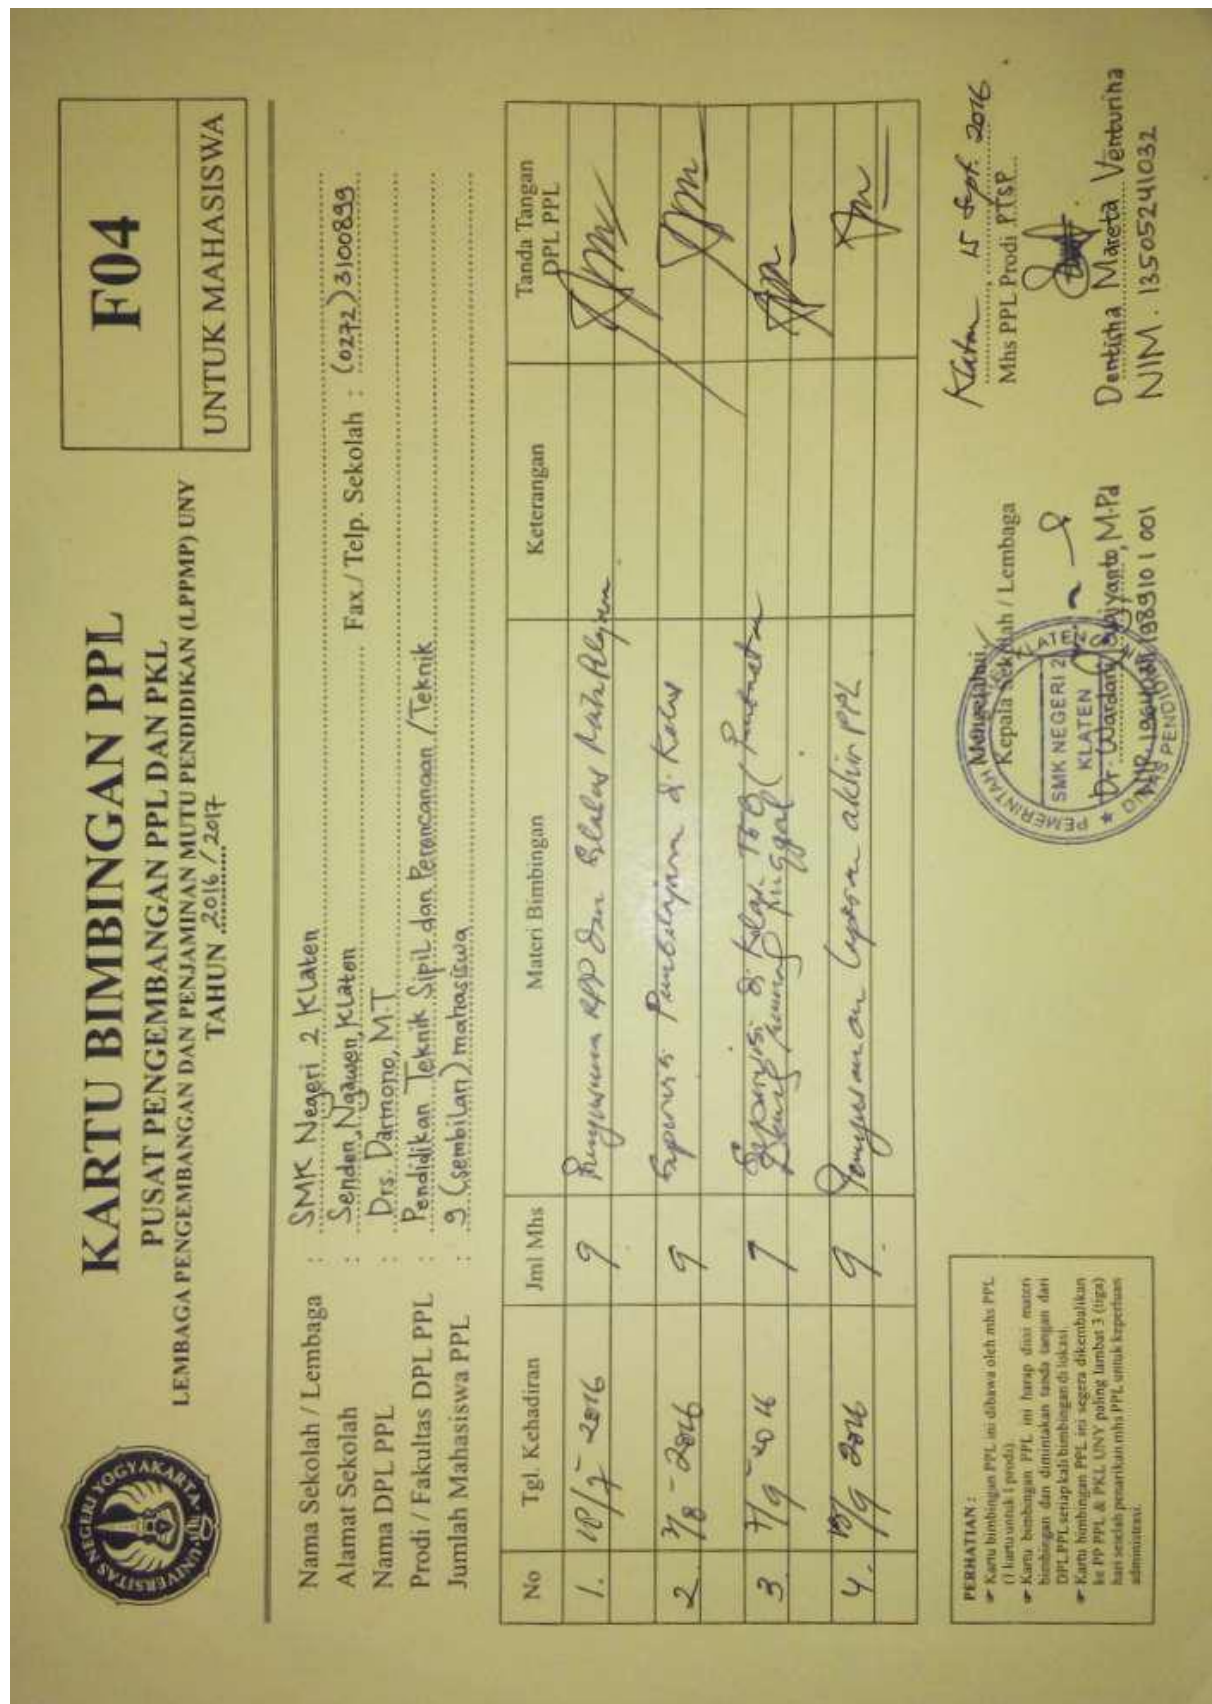 UNIVERSITAS NEGERI YOGYAKARTA
KARTU BIMBINGAN PPL
PUSAT PENGEMBANGAN PPL DAN PKL
LEMBAGA PENGEMBANGAN DAN PENJAMINAN MUTU PENDIDIKAN (LPPMP) UNY
TAHUN 2016 / 2017
F04
UNTUK MAHASISWA
Nama Sekolah / Lembaga : SMK Negeri 2 Klaten
Alamat Sekolah : Senden, Ngawen, Klaten Fax./ Telp. Sekolah : (0272) 3100899
Nama DPL PPL : Drs. Darmono, M.T
Prodi / Fakultas DPL PPL : Pendidikan Teknik Sipil dan Perencanaan / Teknik
Jumlah Mahasiswa PPL : 9 (sembilan) mahasiswa
No Tgl. Kehadiran Jml Mhs Materi Bimbingan Keterangan Tanda Tangan DPL PPL
1. 2016 9 Penyusunan RPP dan
2. /8 - 2016 9 Pembelajaran di Kelas
3. 7/9 - 2016 7 di
4. /9 2016 9 Penyusunan laporan akhir PPL
PERHATIAN :
☞ Kartu bimbingan PPL ini dibawa oleh mhs PPL
(1 kartu untuk 1 prodi)
☞ Kartu bimbingan PPL ini harap diisi materi
bimbingan dan dimintakan tanda tangan dari
DPL PPL setiap kali bimbingan di lokasi.
☞ Kartu bimbingan PPL ini segera dikembalikan
ke PP PPL & PKL UNY paling lambat 3 (tiga)
hari setelah penarikan mhs PPL untuk keperluan
administrasi.
Mengetahui,
Kepala Sekolah / Lembaga
PEMERINTAH KLATEN
SMK NEGERI 2
KLATEN
DINAS PENDIDIKAN
Dr. Wardani Sugiyanto, M.Pd
NIP. 198910 1 001
Klaten, 15 Sept. 2016
Mhs PPL Prodi PTSP
Denticha Mareta Venturina
NIM. 13505241032